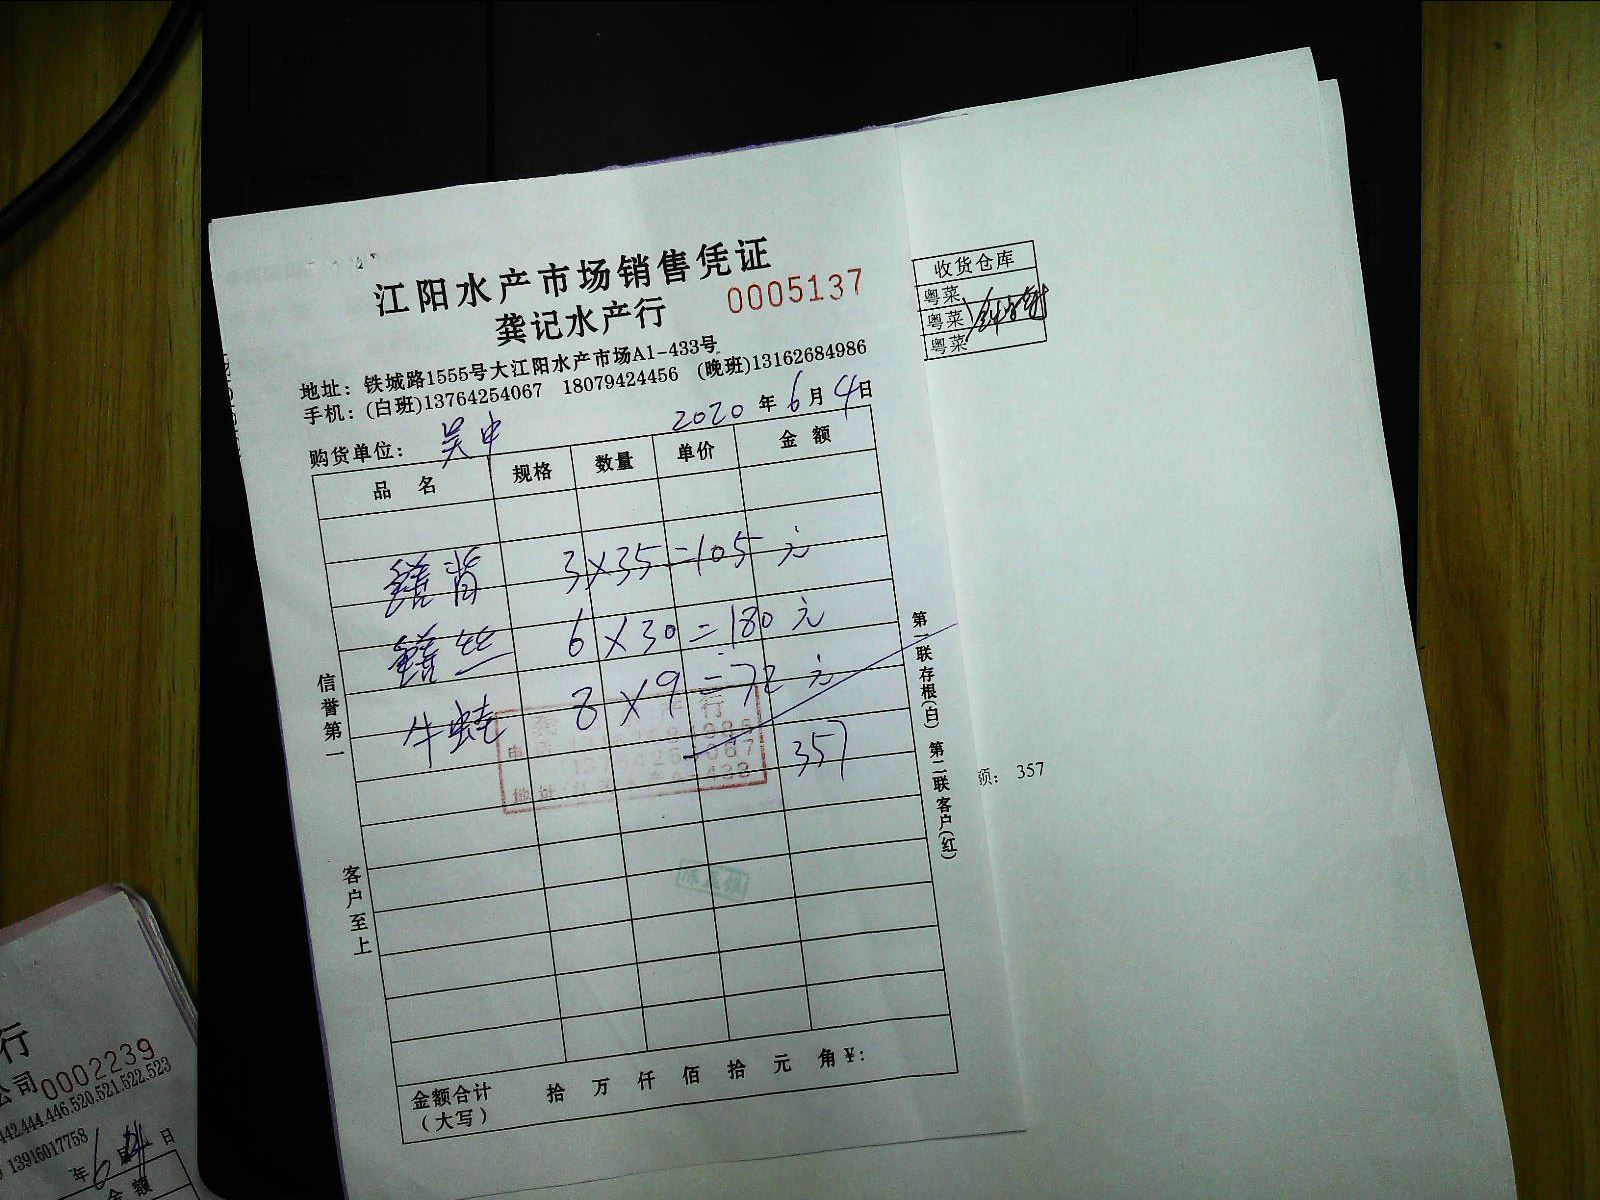 江阳水产市场销售凭证
龚记水产行 0005137
地址：铁城路1555号大江阳水产市场A1-433号
手机：(白班)13764254067 18079424456 (晚班)13162684986
购货单位：吴中 2020年6月4日
品名 规格 数量 单价 金额
鳝背 3×35=105元
鳝丝 6×30=180元
牛蛙 8×9=72元
357
金额合计(大写) 拾 万 仟 佰 拾 元 角 ¥:
信誉第一
客户至上
第一联存根(白) 第二联客户(红)
收货仓库
粤菜
粤菜
粤菜
额: 357
行
公司 0002239
442.444.446.520.521.522.523
13916017758
年6月4日
金额